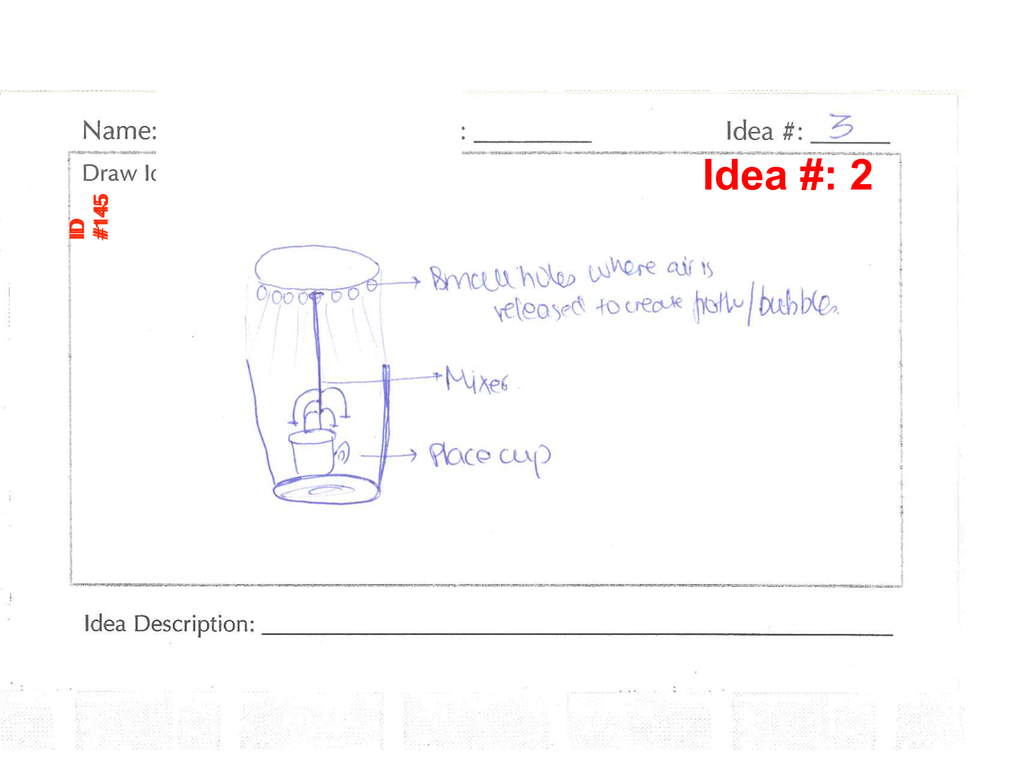 Name:
: Idea #: 3
Draw Id
Idea #: 2
ID
#145
Small holes where air is
released to create froth/bubbles.
Mixer
Place cup
Idea Description: